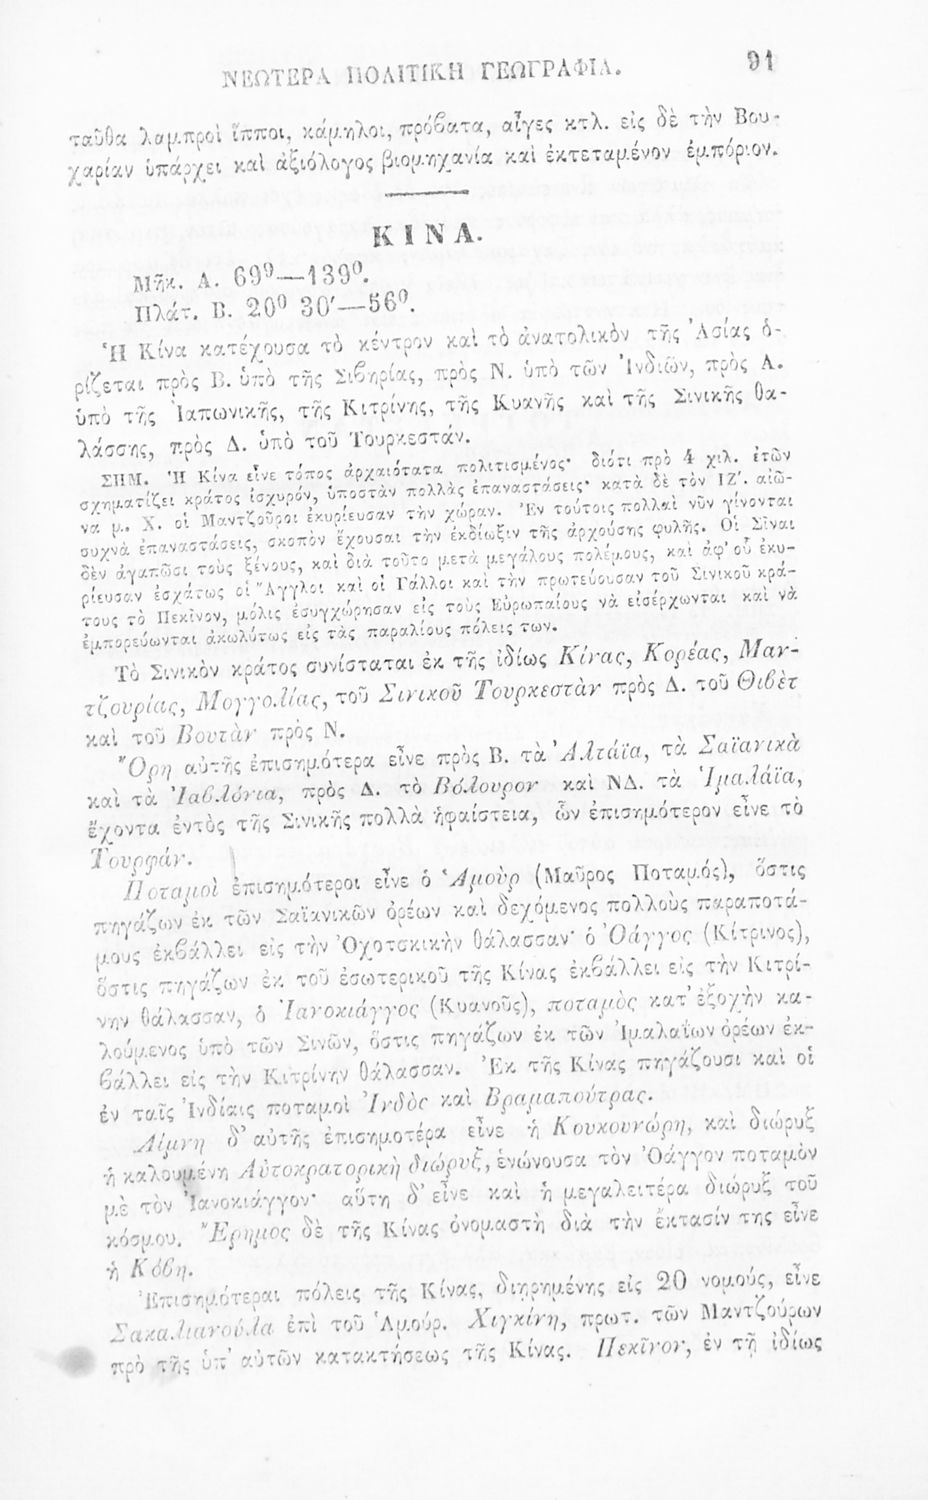 ΝΕΩΤΕΡΑ ΠΟΛΙΤΙΚΗ ΓΕΩΓΡΑΦΙΑ. 91
ταῦθα λαμπροὶ ἵπποι, κάμηλοι, πρόβατα, αἶγες κτλ. εἰς δὲ τὴν Βου-
χαρίαν ὑπάρχει καὶ ἀξιόλογος βιομηχανία καὶ ἐκτεταμένον ἐμπόριον.
ΚΙΝΑ.
Μῆκ. Α. 69⁰—139⁰.
Πλάτ. Β. 20⁰ 30′—56⁰.
Ἡ Κίνα κατέχουσα τὸ κέντρον καὶ τὸ ἀνατολικὸν τῆς Ἀσίας ὁ-
ρίζεται πρὸς Β. ὑπὸ τῆς Σιβηρίας, πρὸς Ν. ὑπὸ τῶν Ἰνδιῶν, πρὸς Α.
ὑπὸ τῆς Ἰαπωνικῆς, τῆς Κιτρίνης, τῆς Κυανῆς καὶ τῆς Σινικῆς θα-
λάσσης, πρὸς Δ. ὑπὸ τοῦ Τουρκεστάν.
ΣΗΜ. Ἡ Κίνα εἶνε τόπος ἀρχαιότατα πολιτισμένος· διότι πρὸ 4 χιλ. ἐτῶν
σχηματίζει κράτος ἰσχυρόν, ὑποστὰν πολλὰς ἐπαναστάσεις· κατὰ δὲ τὸν ΙΖ΄. αἰῶ-
να μ. Χ. οἱ Μαντζοῦροι ἐκυρίευσαν τὴν χώραν. Ἐν τούτοις πολλαὶ νῦν γίνονται
συχνὰ ἐπαναστάσεις, σκοπὸν ἔχουσαι τὴν ἐκδίωξιν τῆς ἀρχούσης φυλῆς. Οἱ Σῖναι
δὲν ἀγαπῶσι τοὺς ξένους, καὶ διὰ τοῦτο μετὰ μεγάλους πολέμους, καὶ ἀφ' οὗ ἐκυ-
ρίευσαν ἐσχάτως οἱ Ἄγγλοι καὶ οἱ Γάλλοι καὶ τὴν πρωτεύουσαν τοῦ Σινικοῦ κρά-
τους τὸ Πεκῖνον, μόλις ἐσυγχώρησαν εἰς τοὺς Εὐρωπαίους νὰ εἰσέρχωνται καὶ νὰ
ἐμπορεύωνται ἀκωλύτως εἰς τὰς παραλίους πόλεις των.
Τὸ Σινικὸν κράτος συνίσταται ἐκ τῆς ἰδίως Κίνας, Κορέας, Μαν-
τζουρίας, Μογγολίας, τοῦ Σινικοῦ Τουρκεστὰν πρὸς Δ. τοῦ Θιβὲτ
καὶ τοῦ Βουτὰν πρὸς Ν.
Ὄρη αὐτῆς ἐπισημότερα εἶνε πρὸς Β. τὰ Ἀλτάϊα, τὰ Σαϊανικὰ
καὶ τὰ Ἰαβλόνια, πρὸς Δ. τὸ Βόλουρον καὶ ΝΔ. τὰ Ἱμαλάϊα,
ἔχοντα ἐντὸς τῆς Σινικῆς πολλὰ ἡφαίστεια, ὧν ἐπισημότερον εἶνε τὸ
Τουρφάν.
Ποταμοὶ ἐπισημότεροι εἶνε ὁ Ἀμοὺρ (Μαῦρος Ποταμός), ὅστις
πηγάζων ἐκ τῶν Σαϊανικῶν ὀρέων καὶ δεχόμενος πολλοὺς παραποτά-
μους ἐκβάλλει εἰς τὴν Ὀχοτσκικὴν θάλασσαν· ὁ Ὁάγγος (Κίτρινος),
ὅστις πηγάζων ἐκ τοῦ ἐσωτερικοῦ τῆς Κίνας ἐκβάλλει εἰς τὴν Κιτρί-
νην θάλασσαν, ὁ Ἰανοκιάγγος (Κυανοῦς), ποταμὸς κατ' ἐξοχὴν κα-
λούμενος ὑπὸ τῶν Σινῶν, ὅστις πηγάζων ἐκ τῶν Ἱμαλαΐων ὀρέων ἐκ-
βάλλει εἰς τὴν Κιτρίνην θάλασσαν. Ἐκ τῆς Κίνας πηγάζουσι καὶ οἱ
ἐν ταῖς Ἰνδίαις ποταμοὶ Ἰνδὸς καὶ Βραμαπούτρας.
Λίμνη δ' αὐτῆς ἐπισημοτέρα εἶνε ἡ Κουκουνώρη, καὶ διώρυξ
ἡ καλουμένη Αὐτοκρατορικὴ διώρυξ, ἑνώνουσα τὸν Ὁάγγον ποταμὸν
μὲ τὸν Ἰανοκιάγγον· αὕτη δ' εἶνε καὶ ἡ μεγαλειτέρα διώρυξ τοῦ
κόσμου. Ἔρημος δὲ τῆς Κίνας ὀνομαστὴ διὰ τὴν ἔκτασίν της εἶνε
ἡ Κόβη.
Ἐπισημότεραι πόλεις τῆς Κίνας, διηρημένης εἰς 20 νομούς, εἶνε
Σακαλιανούλα ἐπὶ τοῦ Ἀμούρ. Χιγκίνη, πρωτ. τῶν Μαντζούρων
πρὸ τῆς ὑπ' αὐτῶν κατακτήσεως τῆς Κίνας. Πεκῖνον, ἐν τῇ ἰδίως